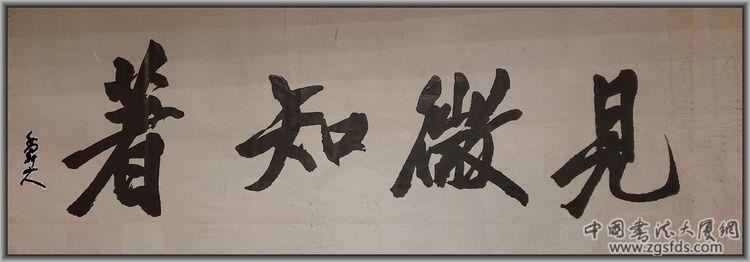 見微知著
中国书法大厦網
www.zgsfds.com